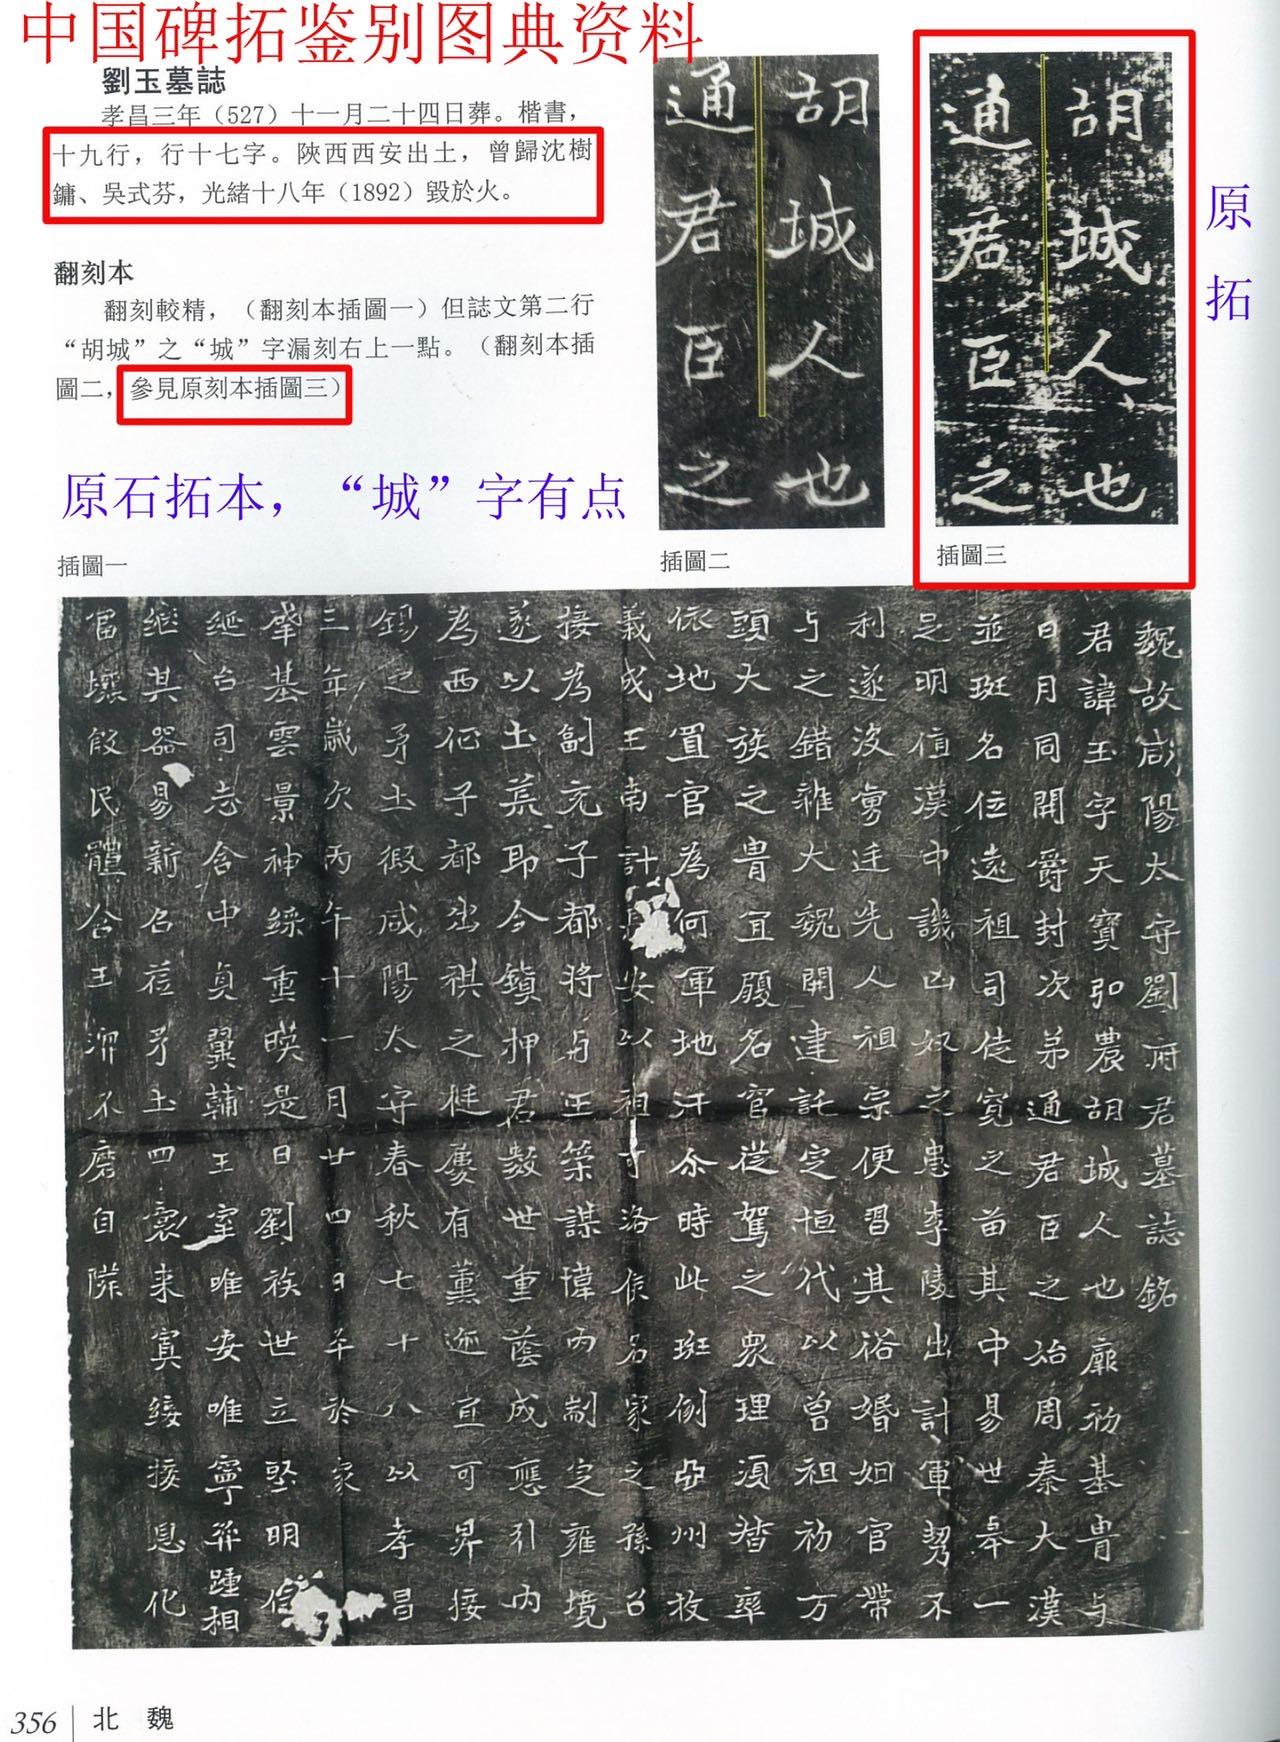 中国碑拓鉴别图典资料
劉玉墓誌
孝昌三年（527）十一月二十四日葬。楷書，
十九行，行十七字。陝西西安出土，曾歸沈樹
鏞、吳式芬，光緒十八年（1892）毀於火。
翻刻本
翻刻較精，（翻刻本插圖一）但誌文第二行
“胡城”之“城”字漏刻右上一點。（翻刻本插
圖二，參見原刻本插圖三）
原石拓本，“城”字有点
插圖一
胡城人也
通君臣之
插圖二
胡城人也
通君臣之
插圖三
原拓
魏故咸陽太守劉府君墓誌銘
君諱玉字天寶弘農胡城人也厥初基胄与
日月同開爵封次弟通君臣之始周秦大漢
並班名位遠祖司徒寬之苗其中易世舉一
足明信漢中譏凶奴之患李陵出計軍勢不
利遂沒勇先人祖宗便習其俗婚姻官帶
与之錯雜大魏開建託定恒代以曾祖初万
頭大族之胄宜履名官從駕之眾理須督率
依地置官為何渾地汗尒時此班例亞州牧
義成王南討長安以祖可洛侯名家之孫召
接為副充子都將与王築謀幃內剬定雍境
遂以土耶今鎮押君數世重蔭成應引內
為西征子都出之挺屢有薰迹宜可昇接
錫之茅土假咸陽太守春秋七十八以孝昌
三年歲次丙午十一月廿四日卒於家
肇基雲景神重暎是日劉族世立堅明信
台司志含中貞翼輔王室唯安唯寧弈踵相
继其器易新名莅茅土四裔來賓綏接恩化
富壤殷民體合王不磨自隣
356 北魏